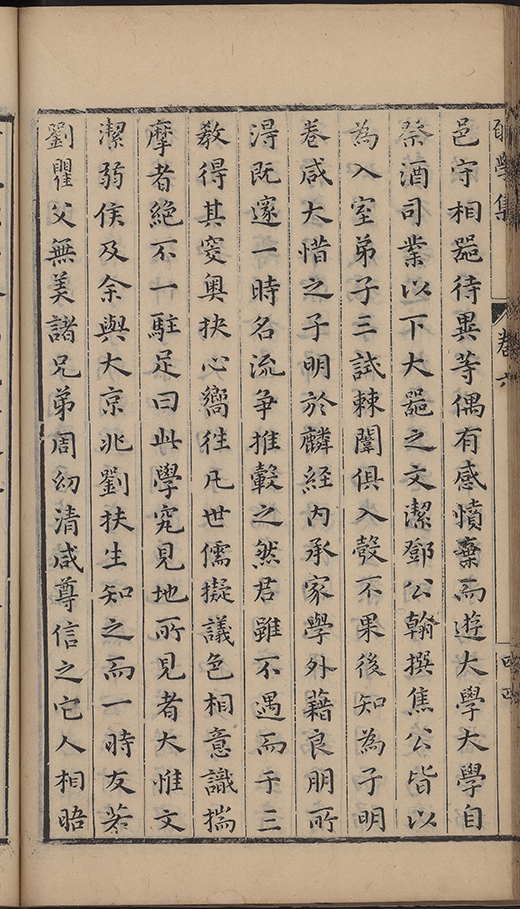 學集
卷六
四四
邑守相器待異等偶有感憤棄而遊大學大學自
祭酒司業以下大器之文潔鄧公翰撰焦公皆以
為入室弟子三試棘闈俱入彀不果後知為子明
卷咸大惜之子明於麟經內承家學外藉良朋所
得既邃一時名流爭推轂之然君雖不遇而于三
教得其窔奧抉心嚮往凡世儒擬議色相意識揣
摩者絕不一駐足曰此學究見地所見者大惟文
潔弱侯及余與大京兆劉扶生知之而一時友若
劉瞿父無美諸兄弟周幼清咸尊信之它人相晤